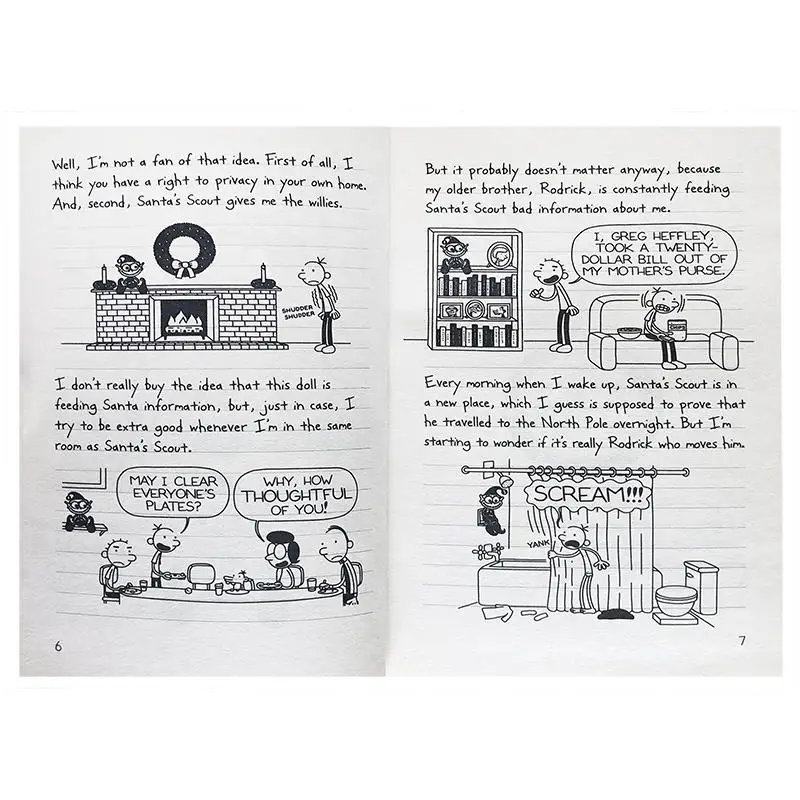 Well, I'm not a fan of that idea. First of all, I
think you have a right to privacy in your own home.
And, second, Santa's Scout gives me the willies.
SHUDDER
SHUDDER
I don't really buy the idea that this doll is
feeding Santa information, but, just in case, I
try to be extra good whenever I'm in the same
room as Santa's Scout.
MAY I CLEAR
EVERYONE'S
PLATES?
WHY, HOW
THOUGHTFUL
OF YOU!
6
But it probably doesn't matter anyway, because
my older brother, Rodrick, is constantly feeding
Santa's Scout bad information about me.
I, GREG HEFFLEY,
TOOK A TWENTY-
DOLLAR BILL OUT OF
MY MOTHER'S PURSE.
Every morning when I wake up, Santa's Scout is in
a new place, which I guess is supposed to prove that
he travelled to the North Pole overnight. But I'm
starting to wonder if it's really Rodrick who moves him.
SCREAM!!!
YANK
7